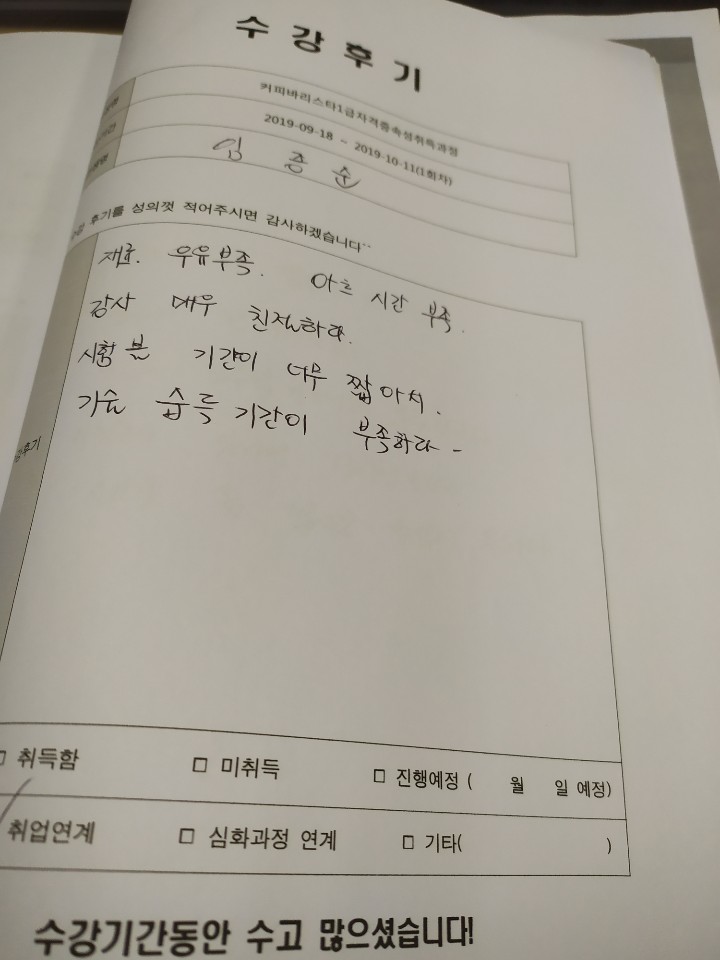 수강후기
커피바리스타1급자격증속성취득과정
2019-09-18 ~ 2019-10-11(1회차)
임종순
후기를 성의껏 적어주시면 감사하겠습니다~
재료. 우유부족. 아흐 시간 부족.
강사 매우 친절하다.
시험 볼 기간이 너무 짧아서.
기술 습득 기간이 부족하다-
강후기
□ 취득함 □ 미취득 □ 진행예정 ( 월 일 예정)
취업연계 □ 심화과정 연계 □ 기타( )
수강기간동안 수고 많으셨습니다!